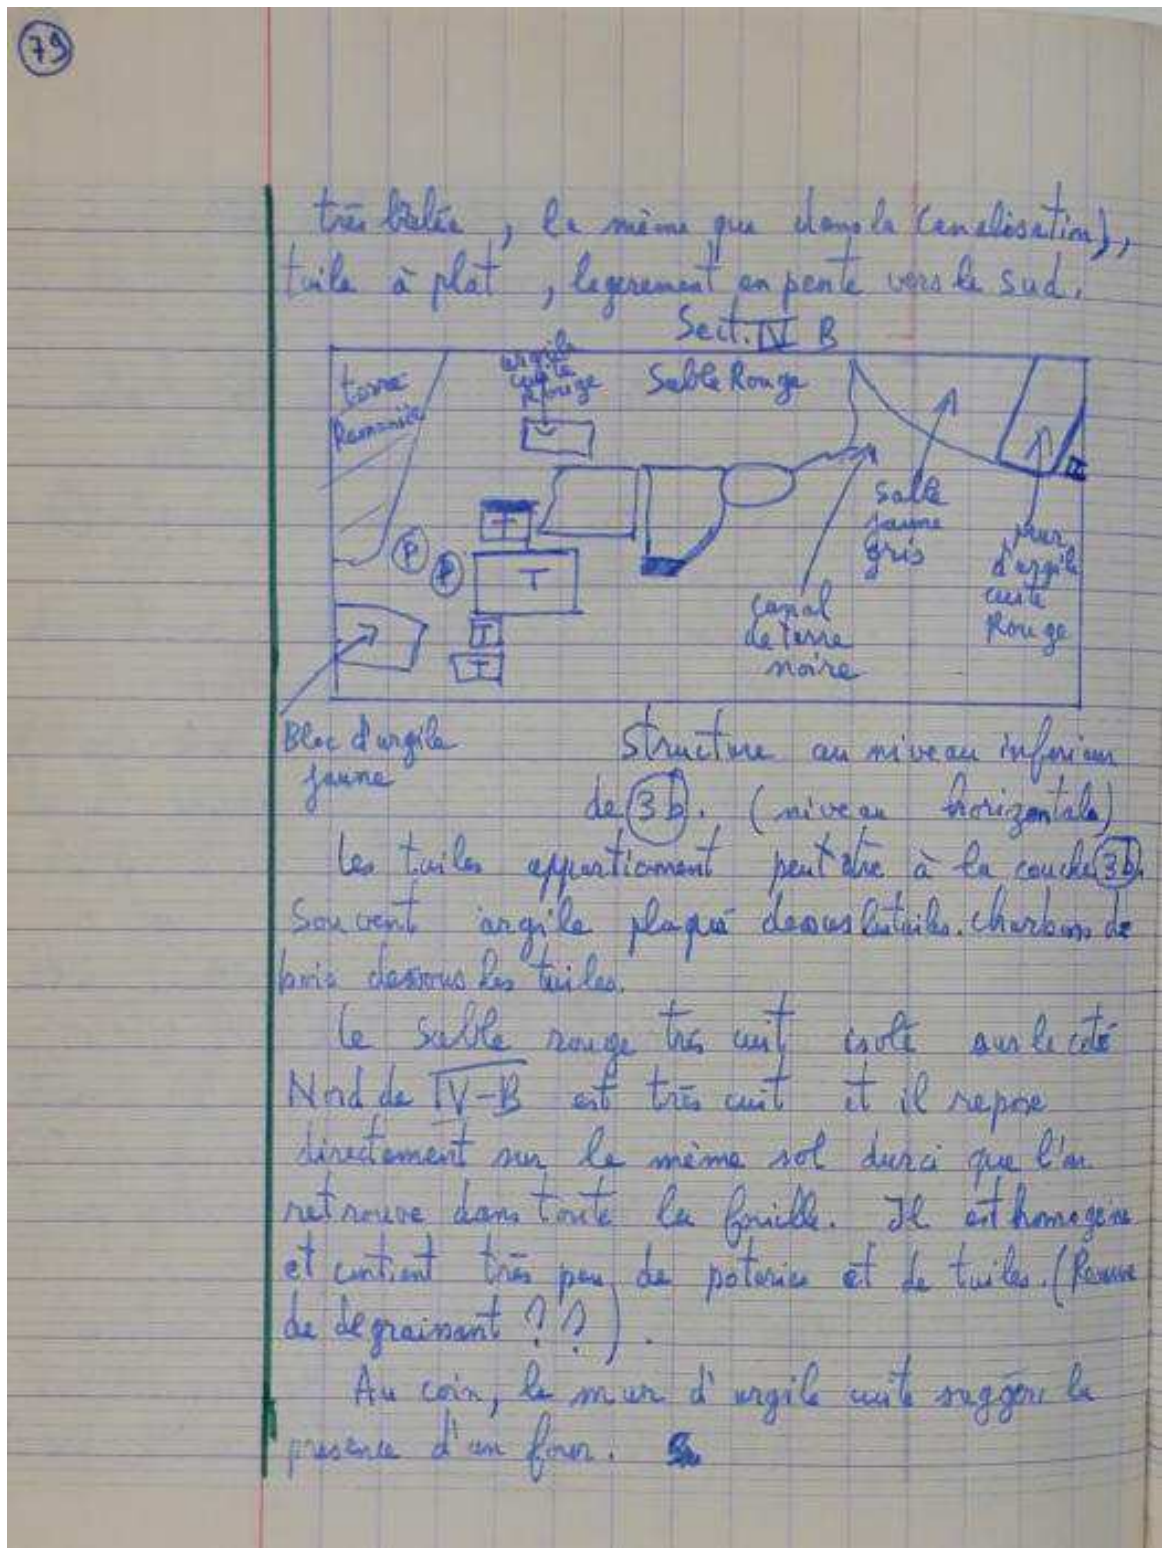 79
très brûlée, la même que dans la canalisation),
tuile à plat, legerement en pente vers le sud.
Sect. IV B
terre
Remaniée
argile
cuite
Rouge
Sable Rouge
Sable
jaune
gris
mur
d'argile
cuite
Rouge
canal
de terre
noire
P
P
T
T
T
T
Bloc d'argile
jaune
Structure au niveau inferieur
de 3b. (niveau horizontale)
Les tuiles appartiennent peut être à la couche 3b.
Souvent argile plaqué dessous les tuiles. charbons de
bois dessous les tuiles.
Le sable rouge très cuit, isolé sur le coté
Nord de IV-B est très cuit et il repose
directement sur le même sol durci que l'on
retrouve dans toute la fouille. Il est homogène
et contient très peu de poterie et de tuiles. (Reserve
de degraissant ??).
Au coin, le mur d'argile cuite suggère la
presence d'un four.